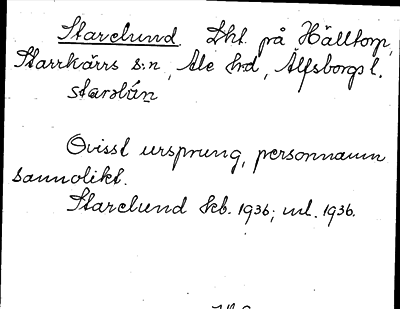 Starelund. Lht. på Hälltorp,
Starrkärrs s:n, Ale hd, Älfsborgs l.
starəlún
Ovisst ursprung, personnamn
sannolikt.
Starelund kb. 1936; ml. 1936.